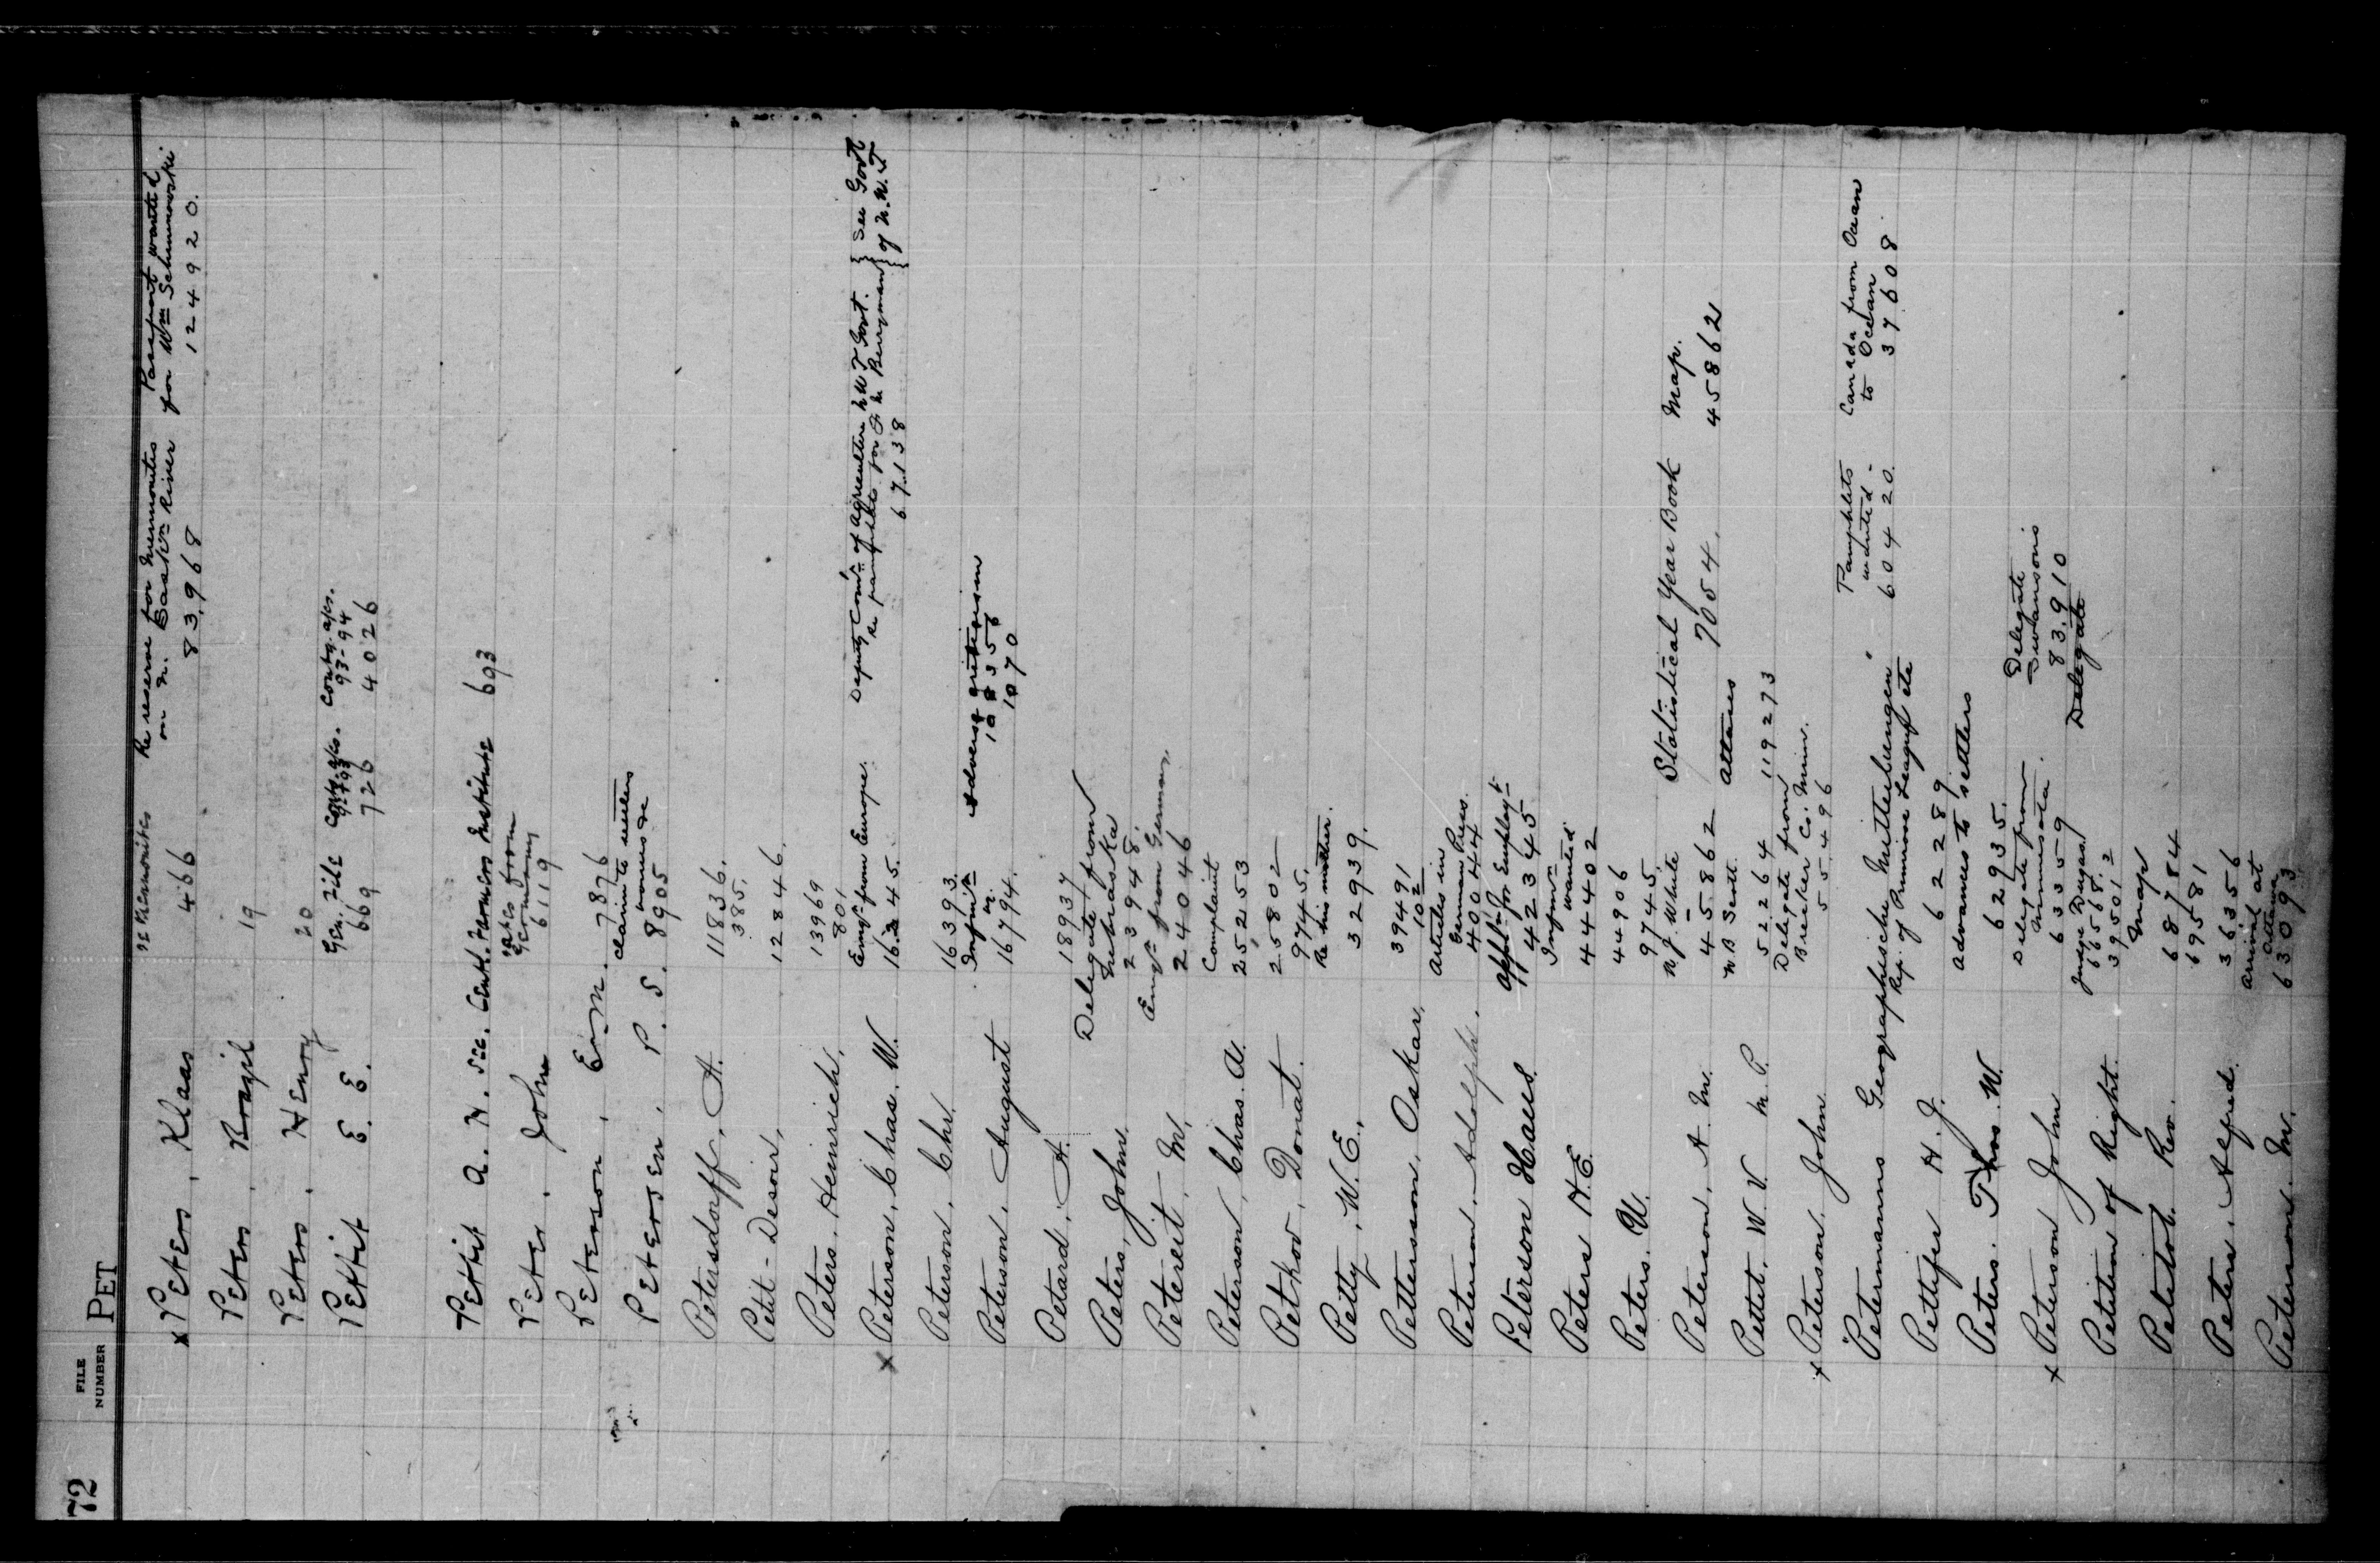 72
FILE NUMBER PET
re Mennonites Re reserve for Mennonites Passport wanted
on N. Sask'n River for Wm Schumnowski
x Peters, Klaas 466 83,968 124920.
Peter, Brazil 19
Peters, Henry 20
Gen. file Contg. a/cs. Contg. a/cs.
93-94
Pettit E. E. 669 726 4026
Pettit A. H. Sec. Centl. Farmers Institute 693
rates from
Germany
Peter, John 6119
Peterson, Ern. 7876
claim to settlers
bonus &c
Petersen, P. S. 8905
Petersdorff, A. 11836.
385.
Petit-Desoir, 12846.
Peters, Heinrich, 13969
801
Emig'n from Europe. Deputy Com'r of Agriculture N W T Govt. } See Govt
re pamphlets for J. M. Berryman } of N.W.T
x Peterson, Chas. W. 16245. 67138
Peterson, Chr. 16393.
Inform'n adverse criticism
10356
Peterson, August 16794. 1070
Petard, A. 18937
Delegate from
Nebraska
Peters, John. 23948.
Emig'n from Germany
Petereit, M. 24046
Complaint
Peterson, Chas. A. 25253
Petkov, Donat. 25802
9745.
Re his matter.
Petty, W. E., 32939.
Pettersson, Oskar, 39491
102
Articles in
German Press.
Peterson, Adolph. 40044
Appl'n for Employ't
Peterson Hans. 42345
Inform'n
wanted
Peters H. E. 44402
Peters. U. 44906
9745.
W. J. White Statistical Year Book Map.
Peterson, A. M. 45862 attaches 7054. 45862
W B Scott
Pettet. W. V. M. P. 52264 119273
Delegate from
Breeker Co. Minn.
x Peterson, John 55496
Pamphlets Canada from Ocean
wanted - to Ocean
Petermanns Geographische Mitteilungen 60420. 37608
Rep. of Primrose League etc
Pettifer H. J. 62289
advances to settlers
Peters. Thos. W. 62935.
Delegate from Delegate
Minnesota. Swansons
x Peterson John 63359 83,910
Judge Dugas Delegate
66568.2
Petition of Right. 39501
Map
Petitot. Rev. 68784
69581
Peters, Alfred. 36356
arrived at
Ottawa
Peterson. M. 63093